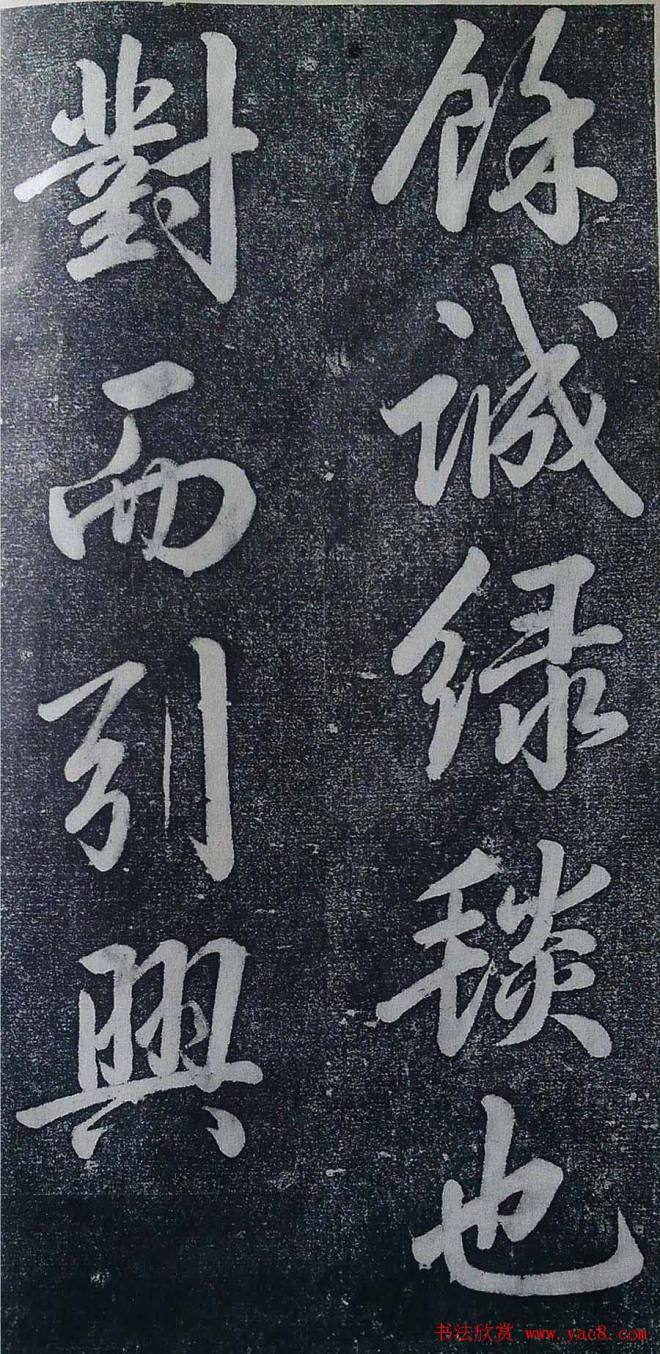 餘誠绿毯也
對而引興
书法欣赏 www.yac8.com